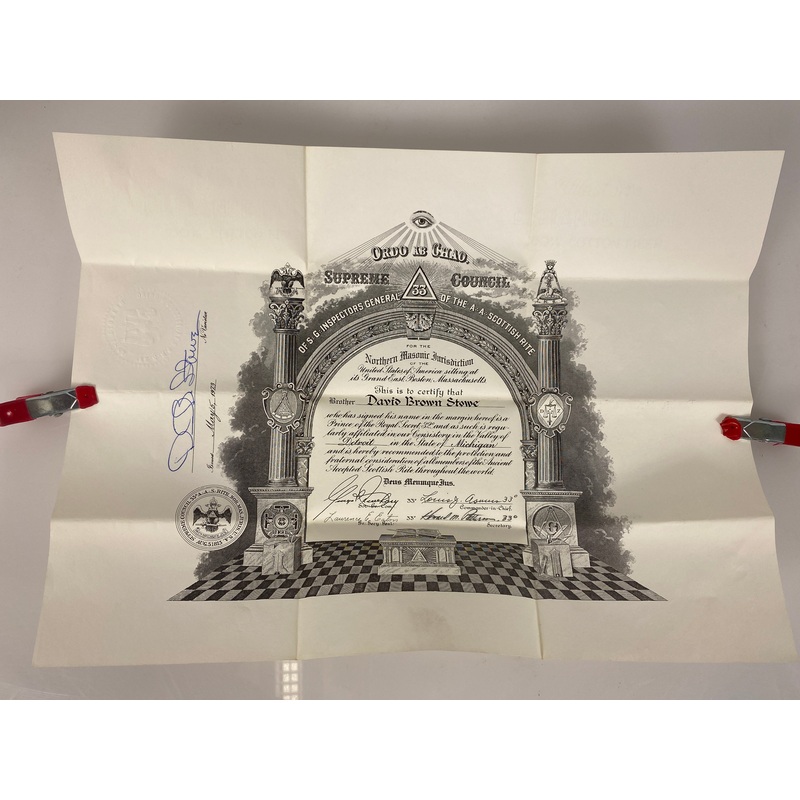 ORDO AB CHAO.
SUPREME COUNCIL
33
OF S. G. INSPECTORS GENERAL OF THE A. A. SCOTTISH RITE
FOR THE
Northern Masonic Jurisdiction
OF THE
United States of America sitting at
its Grand East Boston, Massachusetts
This is to certify that
Brother David Brown Stowe
who has signed his name in the margin hereof is a
Prince of the Royal Secret 32° and as such is regu-
larly affiliated in our Consistory in the Valley of
Detroit in the State of Michigan
and is hereby recommended to the protection and
fraternal consideration of all members of the Ancient
Accepted Scottish Rite throughout the world
Deus Meumque Jus.
33° Louis J. 33°
Commander-in-Chief
Laurence E. Eaton 33° 33°
Secretary
D B Stowe
Ne Varietur
Issued May